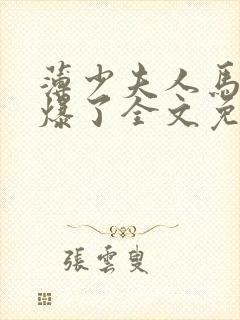 薄少夫人馬
爆了全文免
張雲叟